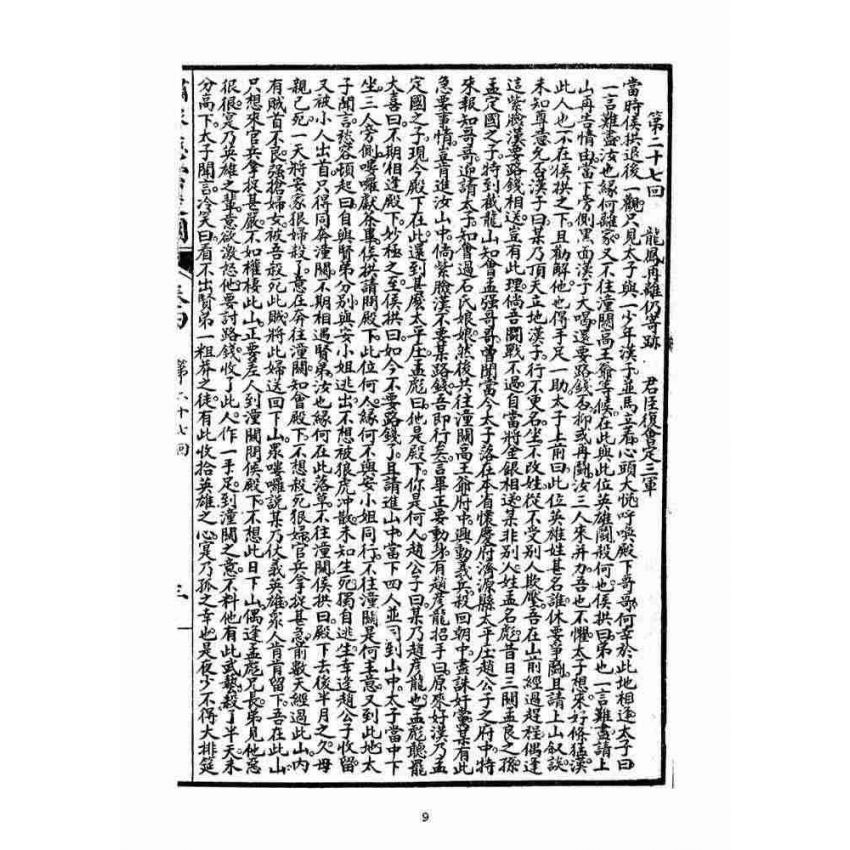 第二十七回 龍鳳再離仍寄跡 君臣復會定三軍
當時侯拱退後一觀只見太子與一少年漢子並馬立着心頭大悅呼喚殿下哥哥何幸於此地相逢太子曰
一言難盡汝也緣何離家又不往潼關高王爺等候在此與此位英雄鬬殺何也侯拱曰弟也一言難盡請上
山再告情由當下旁側黑面漢子大喝還要路錢否抑或再鬬汝三人來并力吾也不懼太子想來好條猛漢
此人也不在侯拱之下且勸解他也得手足一助太子上前曰此位英雄姓甚名誰休要爭鬬且請上山叙談
未知尊意允否漢子曰某乃頂天立地漢子行不更名坐不改姓從不受別人欺壓吾在山前經過趕程偶逢
這紫臉漢要路錢相送豈有此理倘吾鬬戰不過自當將金銀相送某非別人姓孟名彪昔日三關孟良之孫
孟定國之子特到截龍山知會孟强哥哥曽聞當今太子落在本省懷慶府濟源縣太平庄趙公子之府中特
來報知哥哥迎請太子知會過石氏娘娘然後共往潼關高王爺府中興動義兵殺回朝中盡誅奸黨某有此
急要事情豈肯進汝山中倘紫臉漢不要某路錢吾即行矣言畢正要動身有趙彦龍招手曰原來好漢乃孟
定國之子現今殿下在此還到甚麽太平庄孟彪曰他是殿下你是何人趙公子曰某乃趙彦龍也孟彪聽罷
大喜曰不期相逢殿下妙極之至侯拱曰如今不要路錢了且請進山中當下四人並同到山中太子當中下
坐三人旁側嘍囉獻茶畢侯拱請問殿下此位何人緣何不與安小姐同行不往潼關是何主意又到此地太
子聞言愁容頓起曰自與賢弟分別與安小姐逃出不想被狼虎冲散未知生死獨自逃生幸逢趙公子收留
又被小人出首只得同奔潼關不期相遇賢弟汝也緣何在此落草不往潼關侯拱曰殿下去後半月之久母
親已死一天將安家狠婦殺了意在奔往潼關知會殿下不想殺死狠婦官兵拿捉甚急前數天經過此山内
有賊首不良强搶婦女被吾殺死此賊將此婦送回下山衆嘍囉說某乃仗義英雄衆人肯肯留下吾在此山
只想來官兵拿捉甚嚴不如權棲此山正要差人到潼關問侯殿下不想此日下山偶逢孟彪兄長弟見他惡
狠狠寔乃英雄之輩意欲激怒他要討路錢收了此人作一手足到潼關之意不料他有此武藝殺了半天未
分高下太子聞言冷笑曰看不出賢弟一粗莽之徒有此收拾英雄之心寔乃孤之幸也是夜少不得大排筵
卷四 第二十七回
9